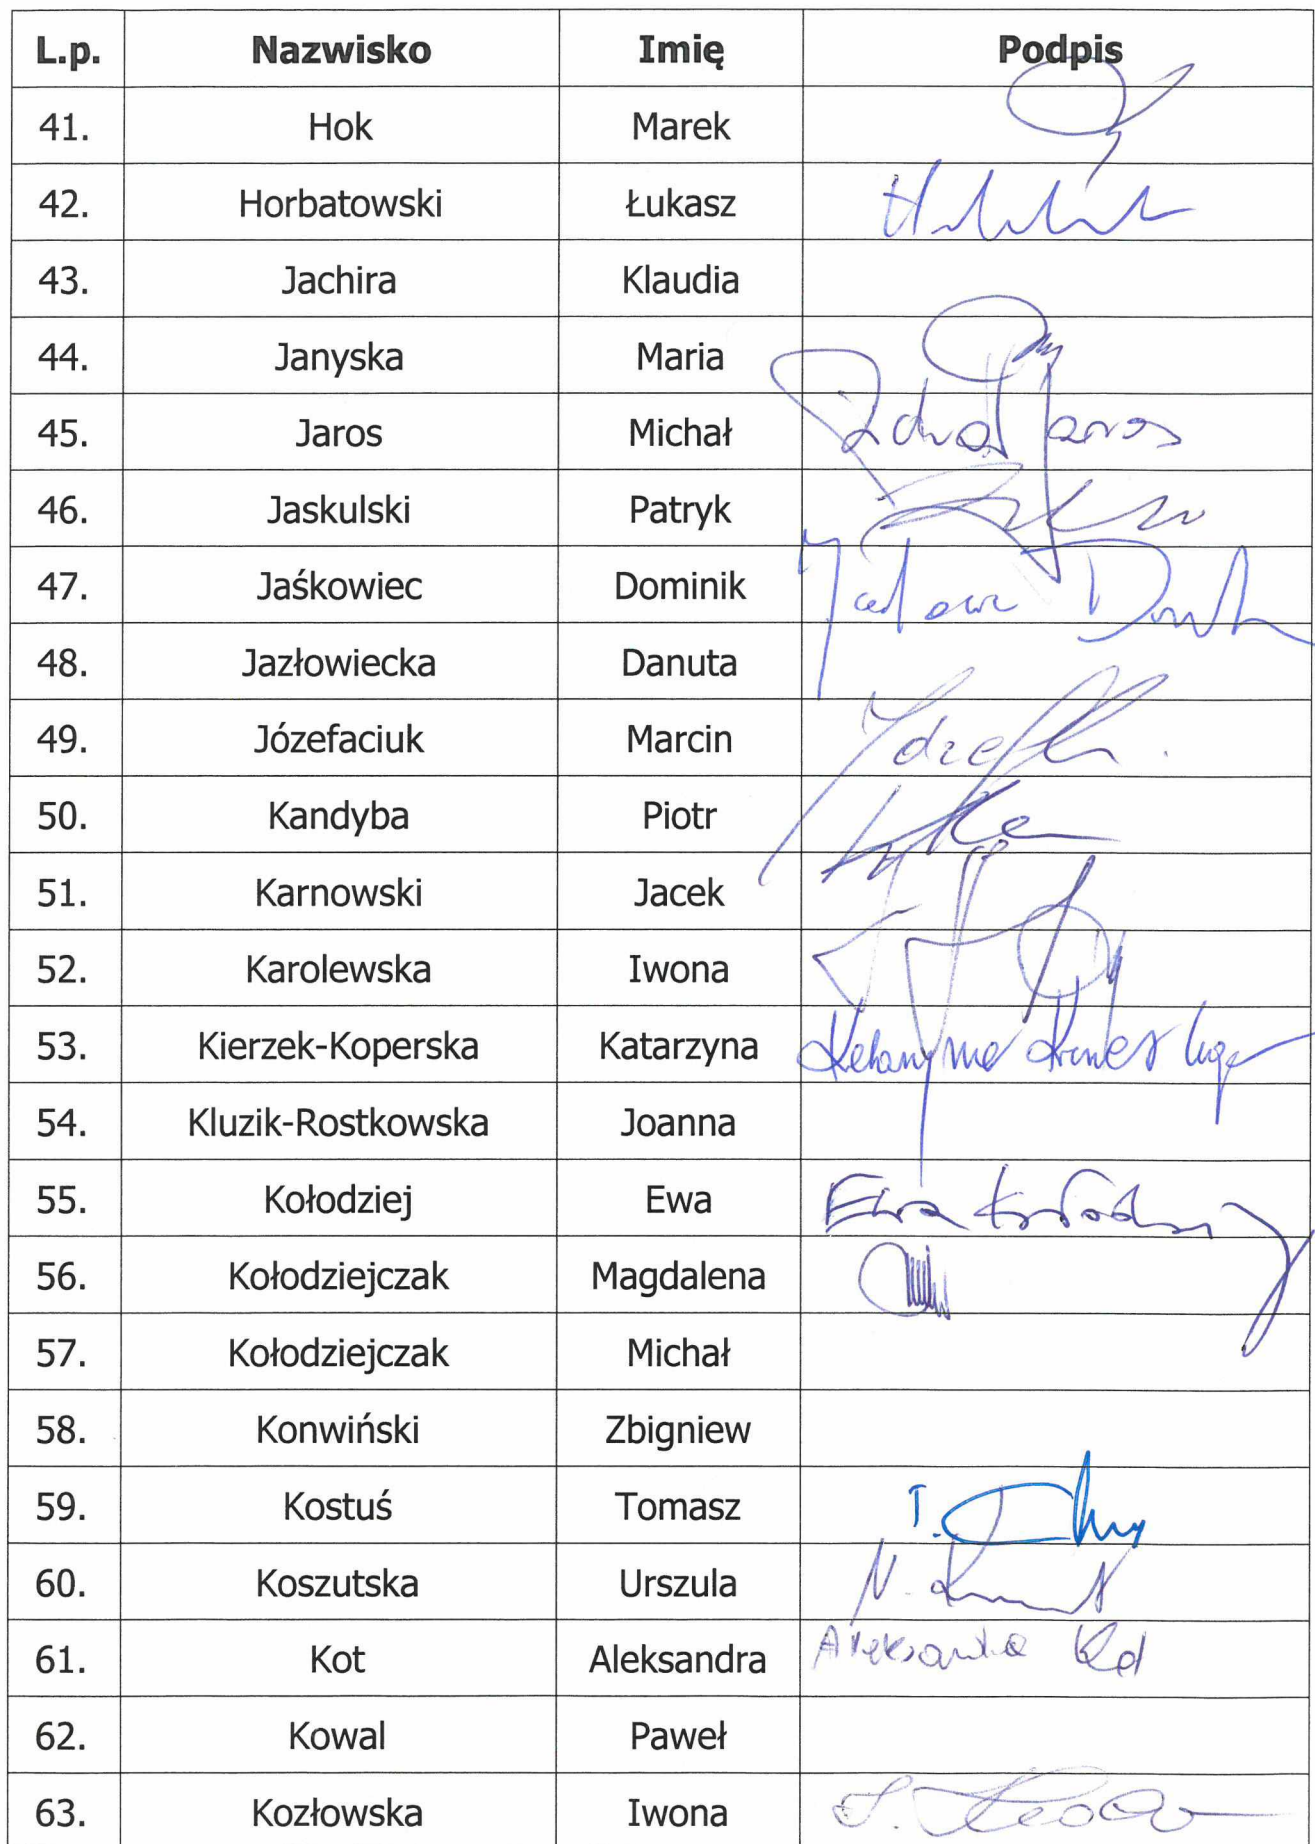 L.p. Nazwisko Imię Podpis
41. Hok Marek
42. Horbatowski Łukasz
43. Jachira Klaudia
44. Janyska Maria
45. Jaros Michał Jaros
46. Jaskulski Patryk
47. Jaśkowiec Dominik
48. Jazłowiecka Danuta
49. Józefaciuk Marcin
50. Kandyba Piotr
51. Karnowski Jacek
52. Karolewska Iwona
53. Kierzek-Koperska Katarzyna
54. Kluzik-Rostkowska Joanna
55. Kołodziej Ewa Ewa Kołodziej
56. Kołodziejczak Magdalena
57. Kołodziejczak Michał
58. Konwiński Zbigniew
59. Kostuś Tomasz
60. Koszutska Urszula
61. Kot Aleksandra Aleksandra Kot
62. Kowal Paweł
63. Kozłowska Iwona